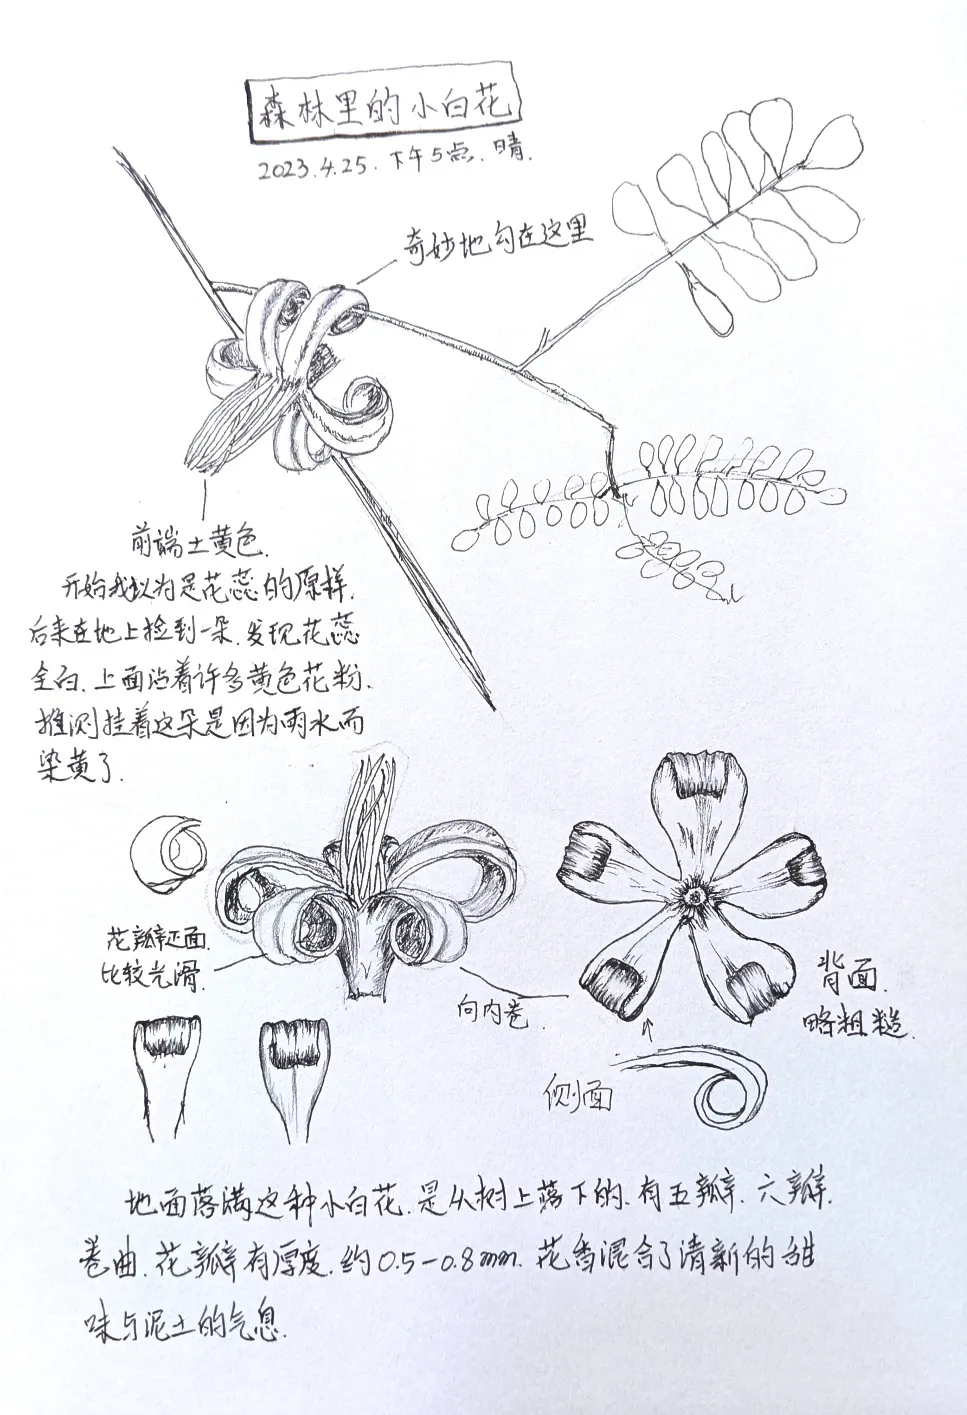 森林里的小白花
2023.4.25.下午5点.晴.
奇妙地勾在这里
前端土黄色.
开始我以为是花蕊的原样.
后来在地上捡到一朵.发现花蕊
全白.上面沾着许多黄色花粉.
推测挂着这朵是因为雨水而
染黄了.
花瓣正面.
比较光滑.
向内卷.
背面.
略粗糙.
侧面
地面落满这种小白花.是从树上落下的.有五瓣.六瓣.
卷曲.花瓣有厚度.约0.5-0.8mm.花香混合了清新的甜
味与泥土的气息.